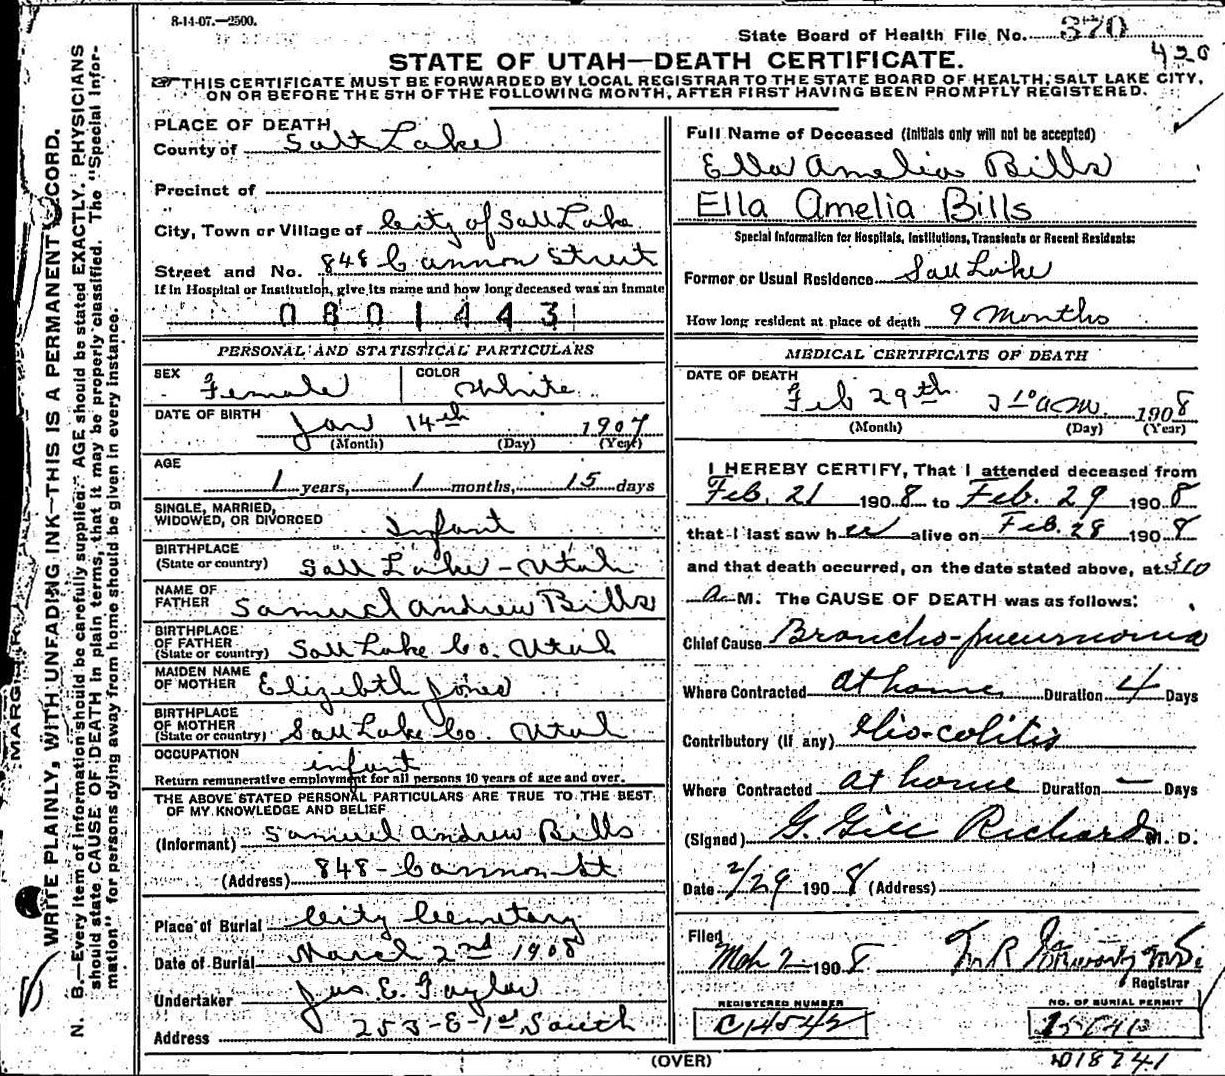 8-14-07.—2500.
State Board of Health File No. 370
420
STATE OF UTAH—DEATH CERTIFICATE.
THIS CERTIFICATE MUST BE FORWARDED BY LOCAL REGISTRAR TO THE STATE BOARD OF HEALTH, SALT LAKE CITY,
ON OR BEFORE THE 5TH OF THE FOLLOWING MONTH, AFTER FIRST HAVING BEEN PROMPTLY REGISTERED.
MARGIN
WRITE PLAINLY, WITH UNFADING INK—THIS IS A PERMANENT RECORD.
N. B.—Every item of information should be carefully supplied. AGE should be stated EXACTLY. PHYSICIANS
should state CAUSE OF DEATH in plain terms, that it may be properly classified. The "Special Infor-
mation" for persons dying away from home should be given in every instance.
PLACE OF DEATH
County of Salt Lake
Precinct of
City, Town or Village of City of Salt Lake
Street and No. 848 Cannon Street
If in Hospital or Institution, give its name and how long deceased was an Inmate
0801443
PERSONAL AND STATISTICAL PARTICULARS
SEX Female COLOR White
DATE OF BIRTH Jan 14th 1907
(Month) (Day) (Year)
AGE
1 years, 1 months, 15 days
SINGLE, MARRIED,
WIDOWED, OR DIVORCED Infant
BIRTHPLACE
(State or country) Salt Lake - Utah
NAME OF
FATHER Samuel Andrew Bills
BIRTHPLACE
OF FATHER
(State or country) Salt Lake Co. Utah
MAIDEN NAME
OF MOTHER Elizebth Jones
BIRTHPLACE
OF MOTHER
(State or country) Salt Lake Co. Utah
OCCUPATION infant
Return remunerative employment for all persons 10 years of age and over.
THE ABOVE STATED PERSONAL PARTICULARS ARE TRUE TO THE BEST
OF MY KNOWLEDGE AND BELIEF
(Informant) Samuel Andrew Bills
(Address) 848 - Cannon St
Place of Burial City Cemetery
Date of Burial March 2nd 1908
Undertaker Jos E. Taylor
Address 253-E-1st South
Full Name of Deceased (Initials only will not be accepted)
Ella Amelia Bills
Ella Amelia Bills
Special Information for Hospitals, Institutions, Transients or Recent Residents:
Former or Usual Residence Salt Lake
How long resident at place of death 9 Months
MEDICAL CERTIFICATE OF DEATH
DATE OF DEATH
Feb 29th 3 10 a.m. 1908
(Month) (Day) (Year)
I HEREBY CERTIFY, That I attended deceased from
Feb. 21 1908 to Feb. 29 1908
that I last saw her alive on Feb. 28 1908
and that death occurred, on the date stated above, at 310
a M. The CAUSE OF DEATH was as follows:
Chief Cause Broncho-pneumonia
Where Contracted at home Duration 4 Days
Contributory (If any) Ilio-colitis
Where Contracted at home Duration — Days
(Signed) G. Gill Richards M. D.
Date 2/29 1908 (Address)
Filed
Mch 2 1908
Registrar
REGISTERED NUMBER
C14542
NO. OF BURIAL PERMIT
(OVER)